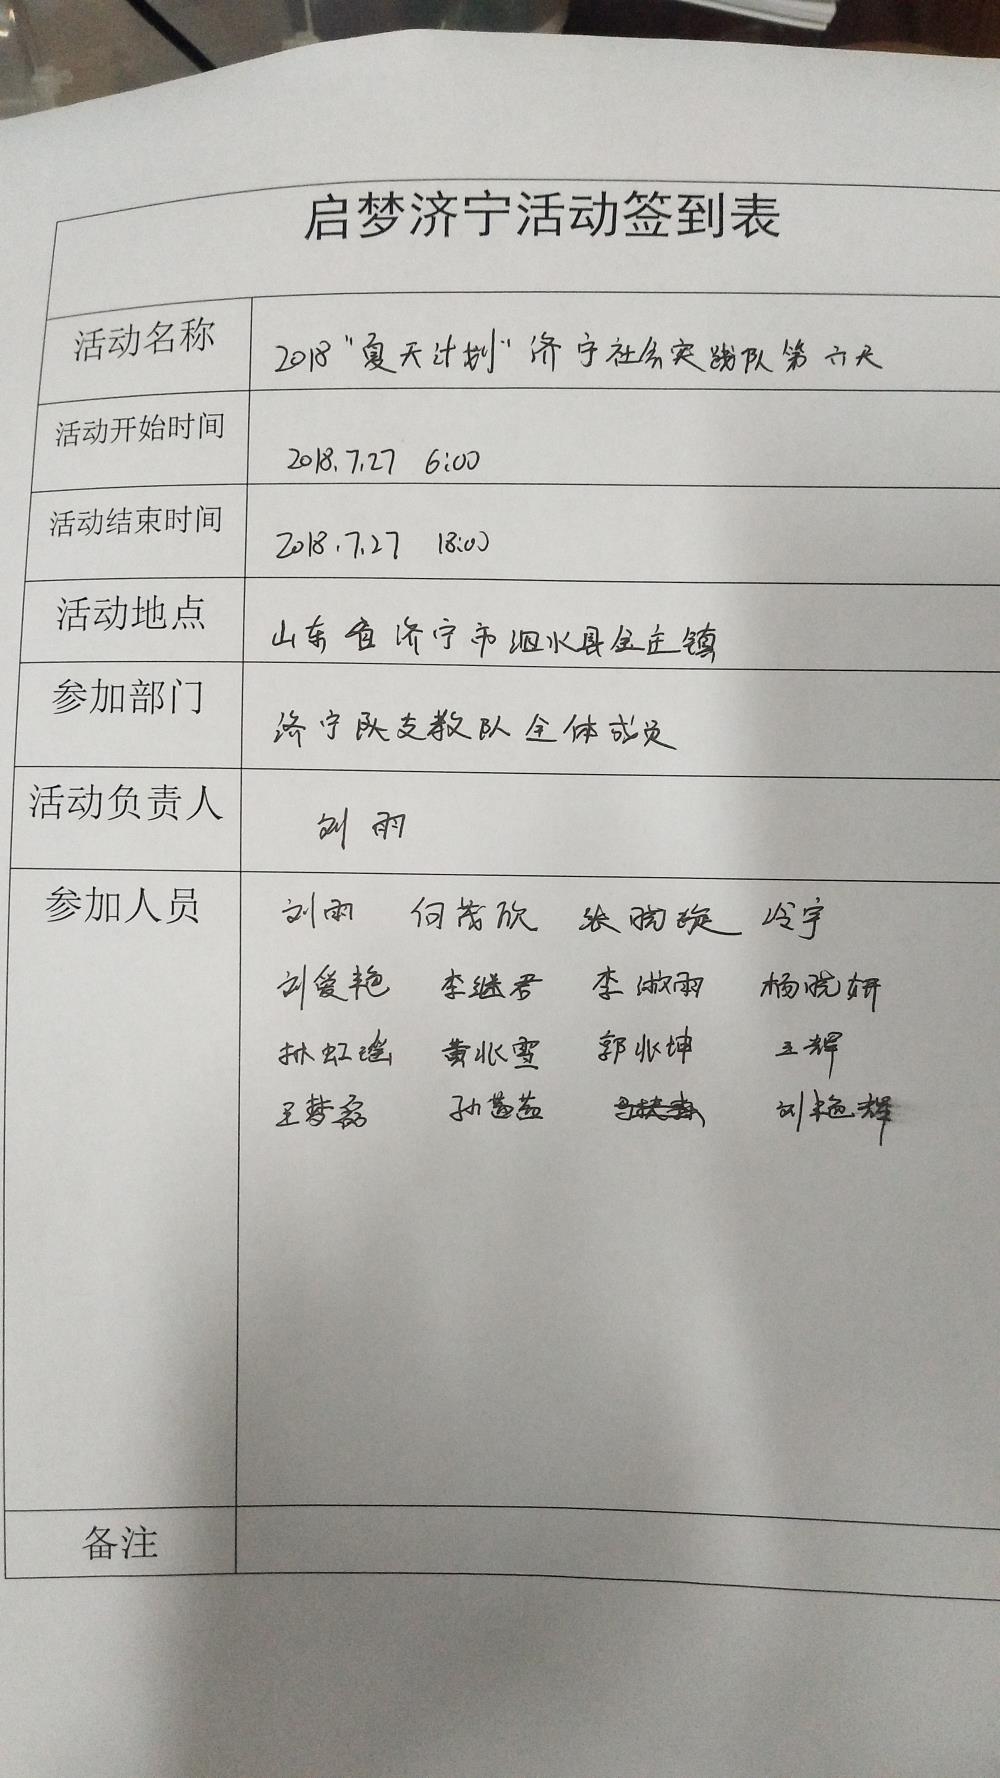 启梦济宁活动签到表
活动名称 2018“夏天计划”济宁社会实践队第六天
活动开始时间 2018.7.27 6:00
活动结束时间 2018.7.27 18:00
活动地点 山东省济宁市泗水县金庄镇
参加部门 济宁队支教队全体成员
活动负责人 刘雨
参加人员 刘雨 何茂欣 张晓璇 冷宇
刘爱艳 李继君 李淑雨 杨晓妍
孙虹瑶 黄兆雪 郭兆坤 王辉
王梦磊 刘艳辉
备注